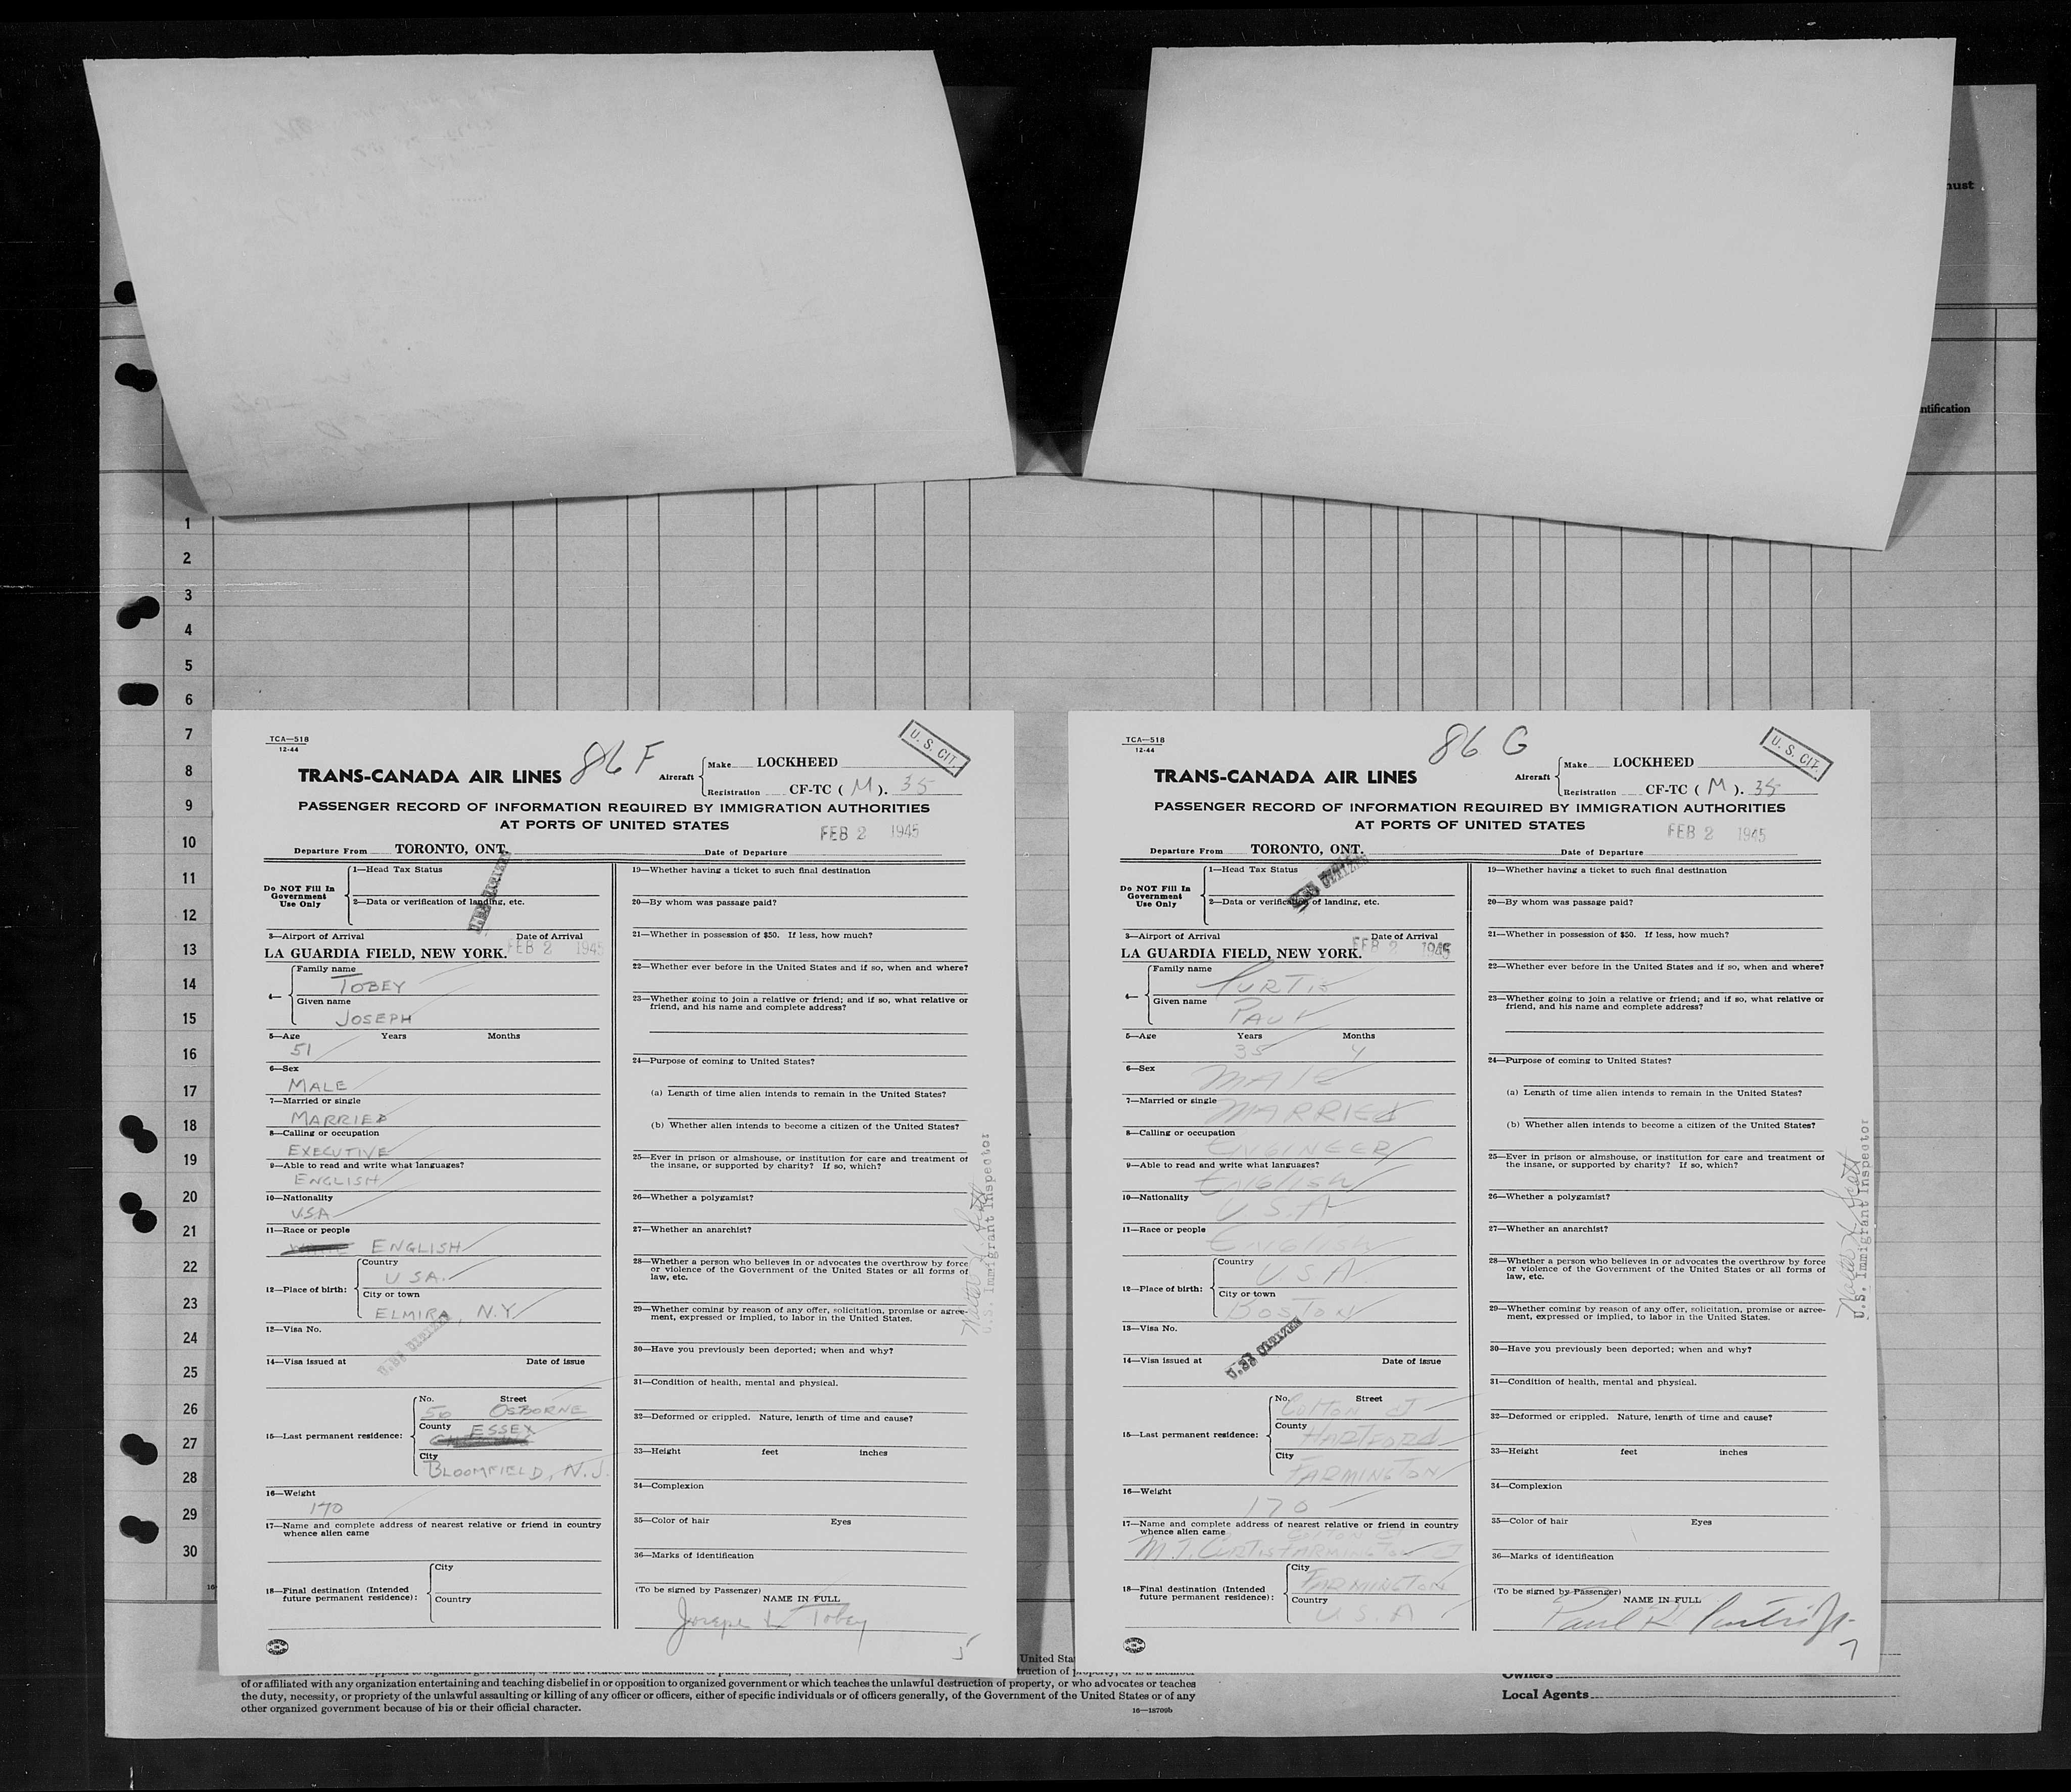 must
ntification
1
2
3
4
5
6
7
8
9
10
11
12
13
14
15
16
17
18
19
20
21
22
23
24
25
26
27
28
29
30
TCA—518
12-44
86 F
U. S. CIT.
TRANS-CANADA AIR LINES
Aircraft
Make LOCKHEED
Registration CF-TC ( M ). 35
PASSENGER RECORD OF INFORMATION REQUIRED BY IMMIGRATION AUTHORITIES
AT PORTS OF UNITED STATES
FEB 2 1945
Departure From TORONTO, ONT. Date of Departure
Do NOT Fill In
Government
Use Only
1—Head Tax Status
2—Data or verification of landing, etc.
3—Airport of Arrival Date of Arrival
LA GUARDIA FIELD, NEW YORK. FEB 2 1945
4—
Family name
TOBEY
Given name
JOSEPH
5—Age Years Months
51
6—Sex
MALE
7—Married or single
MARRIED
8—Calling or occupation
EXECUTIVE
9—Able to read and write what languages?
ENGLISH
10—Nationality
U.S.A
11—Race or people
ENGLISH
12—Place of birth:
Country
U SA.
City or town
ELMIRA, N.Y
13—Visa No.
14—Visa issued at Date of issue
15—Last permanent residence:
No. Street
50 OSBORNE
County ESSEX
City
BLOOMFIELD, N.J.
16—Weight
170
17—Name and complete address of nearest relative or friend in country
whence alien came
18—Final destination (Intended
future permanent residence):
City
Country
19—Whether having a ticket to such final destination
20—By whom was passage paid?
21—Whether in possession of $50. If less, how much?
22—Whether ever before in the United States and if so, when and where?
23—Whether going to join a relative or friend; and if so, what relative or
friend, and his name and complete address?
24—Purpose of coming to United States?
(a) Length of time alien intends to remain in the United States?
(b) Whether alien intends to become a citizen of the United States?
25—Ever in prison or almshouse, or institution for care and treatment of
the insane, or supported by charity? If so, which?
26—Whether a polygamist?
27—Whether an anarchist?
28—Whether a person who believes in or advocates the overthrow by force
or violence of the Government of the United States or all forms of
law, etc.
29—Whether coming by reason of any offer, solicitation, promise or agree-
ment, expressed or implied, to labor in the United States.
30—Have you previously been deported; when and why?
31—Condition of health, mental and physical.
32—Deformed or crippled. Nature, length of time and cause?
33—Height feet inches
34—Complexion
35—Color of hair Eyes
36—Marks of identification
(To be signed by Passenger)
NAME IN FULL
Joseph L Tobey
5
U.S. Immigrant Inspector
TCA—518
12-44
86 G
U. S. CIT.
TRANS-CANADA AIR LINES
Aircraft
Make LOCKHEED
Registration CF-TC ( M ). 35
PASSENGER RECORD OF INFORMATION REQUIRED BY IMMIGRATION AUTHORITIES
AT PORTS OF UNITED STATES
FEB 2 1945
Departure From TORONTO, ONT. Date of Departure
Do NOT Fill In
Government
Use Only
1—Head Tax Status
2—Data or verification of landing, etc.
3—Airport of Arrival Date of Arrival
LA GUARDIA FIELD, NEW YORK. FEB 2 1945
4—
Family name
CURTIS
Given name
PAUL
5—Age Years Months
35 4
6—Sex
MALE
7—Married or single
MARRIED
8—Calling or occupation
ENGINEER
9—Able to read and write what languages?
English
10—Nationality
U.S.A
11—Race or people
English
12—Place of birth:
Country
USA
City or town
BOSTON
13—Visa No.
U.S. CITIZEN
14—Visa issued at Date of issue
15—Last permanent residence:
No. Street
COLTON ST
County
HARTFORD
City
FARMINGTON
16—Weight
170
17—Name and complete address of nearest relative or friend in country
whence alien came
M.T. CURTIS FARMINGTON
18—Final destination (Intended
future permanent residence):
City
FARMINGTON
Country
U.S.A
19—Whether having a ticket to such final destination
20—By whom was passage paid?
21—Whether in possession of $50. If less, how much?
22—Whether ever before in the United States and if so, when and where?
23—Whether going to join a relative or friend; and if so, what relative or
friend, and his name and complete address?
24—Purpose of coming to United States?
(a) Length of time alien intends to remain in the United States?
(b) Whether alien intends to become a citizen of the United States?
25—Ever in prison or almshouse, or institution for care and treatment of
the insane, or supported by charity? If so, which?
26—Whether a polygamist?
27—Whether an anarchist?
28—Whether a person who believes in or advocates the overthrow by force
or violence of the Government of the United States or all forms of
law, etc.
29—Whether coming by reason of any offer, solicitation, promise or agree-
ment, expressed or implied, to labor in the United States.
30—Have you previously been deported; when and why?
31—Condition of health, mental and physical.
32—Deformed or crippled. Nature, length of time and cause?
33—Height feet inches
34—Complexion
35—Color of hair Eyes
36—Marks of identification
(To be signed by Passenger)
NAME IN FULL
Paul R Curtis Jr.
7
U.S. Immigrant Inspector
United Sta
of or affiliated with any organization entertaining and teaching disbelief in or opposition to organized government or which teaches the unlawful destruction of property, or who advocates or teaches
the duty, necessity, or propriety of the unlawful assaulting or killing of any officer or officers, either of specific individuals or of officers generally, of the Government of the United States or of any
other organized government because of his or their official character.
16—18709b
Owners
Local Agents